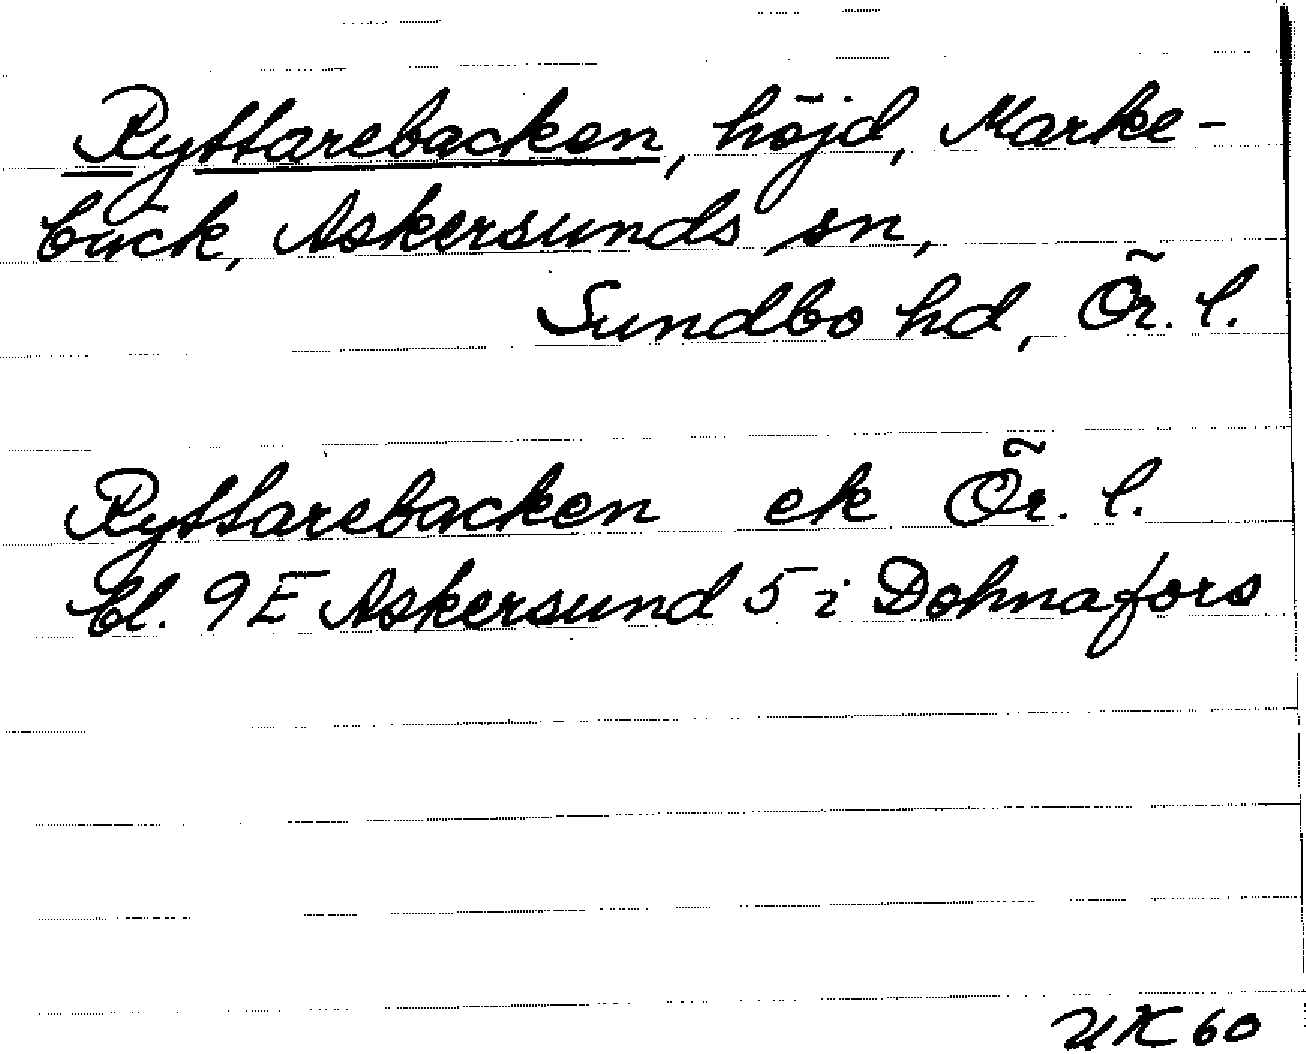 Ryttarebacken, höjd, Marke-
bäck, Askersunds sn,
Sundbo hd, Ör. l.
Ryttarebacken ek Ör. l.
bl. 9E Askersund 5 i Dohnafors
UK 60